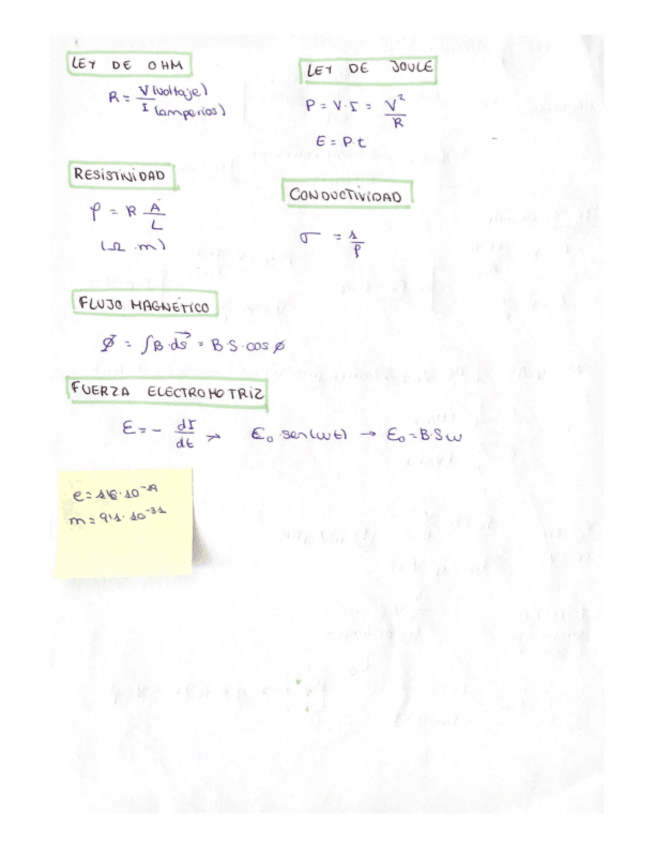 LEY DE OHM
R = V (voltaje) / I (amperios)
LEY DE JOULE
P = V·I = V² / R
E = P·t
RESISTIVIDAD
ρ = R A / L
(Ω · m)
CONDUCTIVIDAD
σ = 1 / ρ
FLUJO MAGNÉTICO
Φ = ∫B·ds = B·S·cos ø
FUERZA ELECTROMOTRIZ
ε = - dI / dt → ε₀ sen(ωt) → ε₀ = B·S ω
e = 1'6·10⁻¹⁹
m = 9'1·10⁻³¹